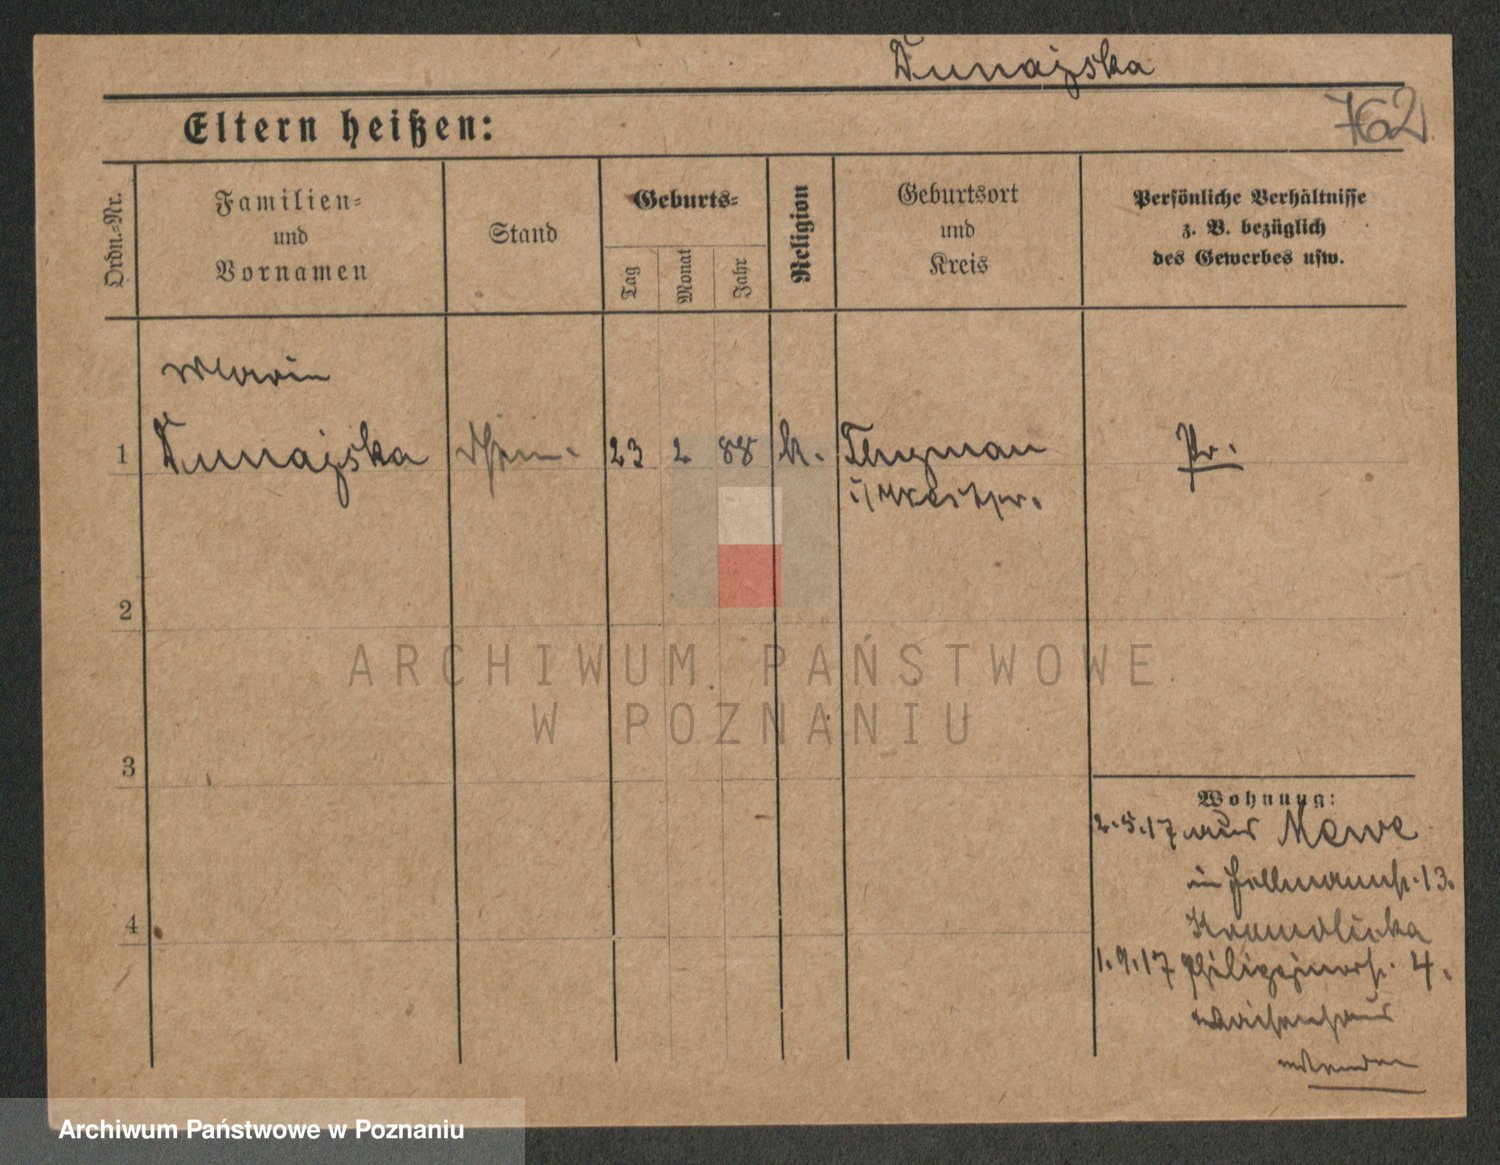 Dunajska
762
Eltern heißen:
Ordn.-Nr.
Familien-
und
Vornamen
Stand
Geburts-
Tag
Monat
Jahr
Religion
Geburtsort
und
Kreis
Persönliche Verhältnisse
z. B. bezüglich
des Gewerbes usw.
Marie
1 Dunajska 23 2 88 k. Pr.
i/Westpr.
2
ARCHIWUM PAŃSTWOWE
W POZNANIU
3
Wohnung:
2.5.17 aus Mewe
in 13.
1.9.17 4.
Waisenhaus
4
Archiwum Państwowe w Poznaniu